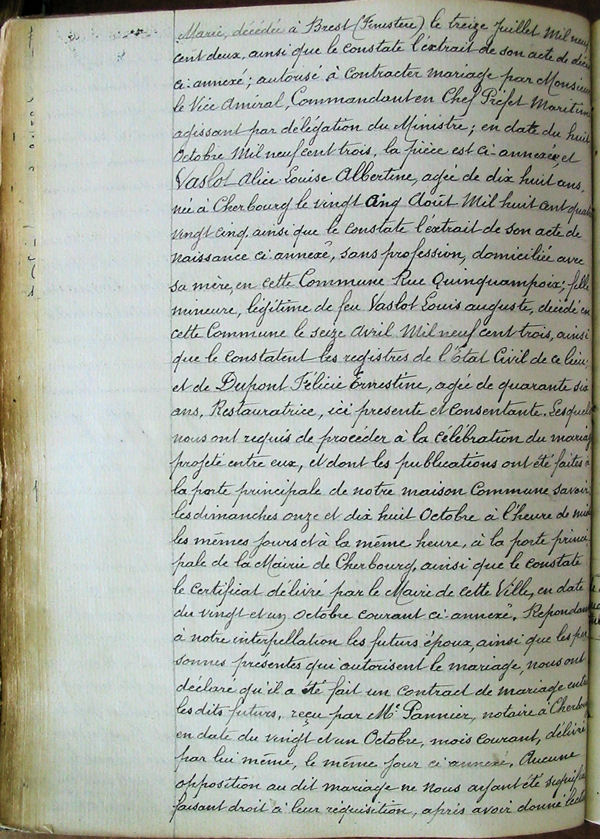 Marie, décédée à Brest (Finistère) le treize Juillet Mil neuf
cent deux, ainsi que le constate l'extrait de son acte de décè
ci-annexé; autorisé à contracter mariage par Monsieur
le Vice Amiral, Commandant en Chef Préfet Maritime
agissant par délégation du Ministre; en date du huit
Octobre Mil neuf cent trois, la pièce est ci-annexée, et
Vaslot Alice Louise Albertine, agée de dix huit ans,
née à Cherbourg le vingt cinq Août Mil huit cent quatre
vingt cinq, ainsi que le constate l'extrait de son acte de
naissance ci annexé, sans profession, domiciliée avec
sa mère, en cette Commune Rue Quinquampoix; fille
mineure, légitime de feu Vaslot Louis auguste, décédé en
cette Commune le seize Avril Mil neuf cent trois, ainsi
que le constatent les registres de l'Etat Civil de ce lieu,
et de Dupont Félicie Ernestine, agée de quarante six
ans, Restauratrice, ici presente et consentante. Lesquels
nous ont requis de procéder à la célébration du mariag
projeté entre eux, et dont les publications ont été faites à
la porte principale de notre maison Commune savoir
les dimanches onze et dix huit Octobre à l'heure de midi
les mêmes jours et à la même heure, à la porte princi
pale de la Mairie de Cherbourg, ainsi que le constate
le certificat délivré par le Maire de cette Ville, en date
du vingt et un octobre courant ci annexé. Repondant
à notre interpellation les futurs époux, ainsi que les per
sonnes présentes qui autorisent le mariage, nous ont
déclaré qu'il a été fait un contract de mariage entre
les dits futurs, reçu par Me Pannier, notaire à Cherbourg
en date du vingt et un Octobre, mois courant, délivré
par lui même, le même jour ci annexé. Aucune
opposition au dit mariage ne Nous ayant été signifiée
faisant droit à leur réquisition, après avoir donné lecture